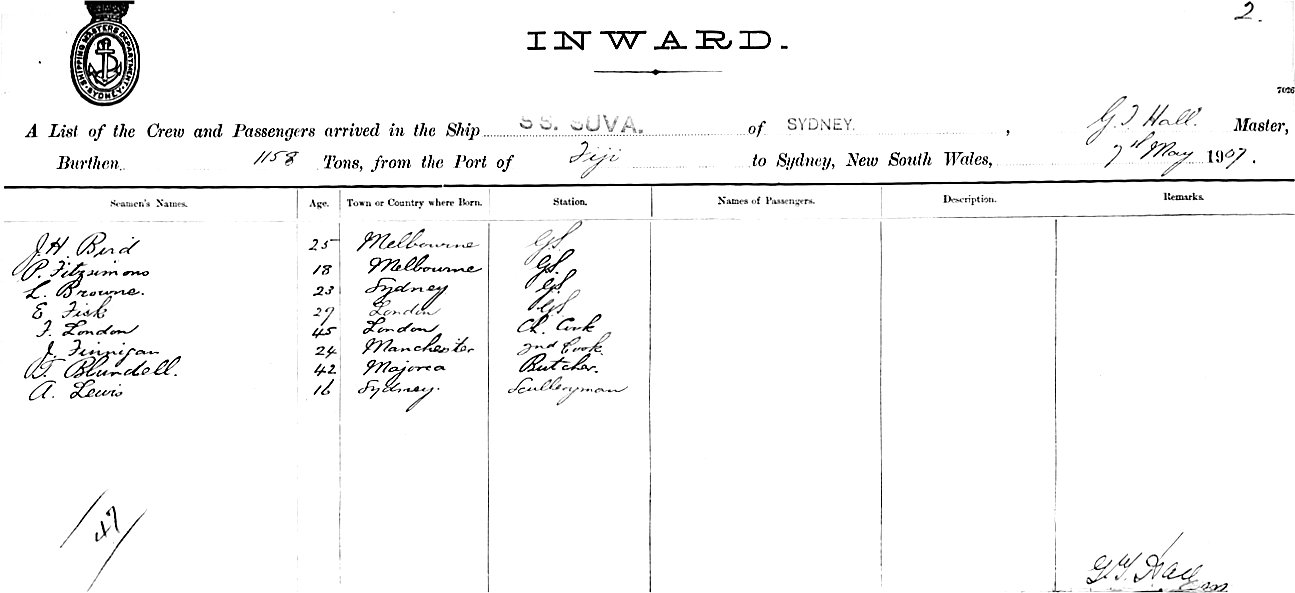 2.
SHIPPING MASTERS DEPARTMENT
SYDNEY
INWARD.
7026
A List of the Crew and Passengers arrived in the Ship SS. SUVA. of SYDNEY, G.T. Hall. Master,
Burthen 1158 Tons, from the Port of Fiji to Sydney, New South Wales, 7th May 1907.
Seamen's Names. Age. Town or Country where Born. Station. Names of Passengers. Description. Remarks.
J.H. Bird 25 Melbourne GS.
P. Fitzsimons 18 Melbourne GS.
L. Browne. 23 Sydney GS.
E Fisk 29 London GS
F. London 45 London Ch. Cook
J. Finnigan 24 Manchester 2nd Cook.
Blundell. 42 Majorca Butcher.
A. Lewis 16 Sydney. Sculleryman
/47/